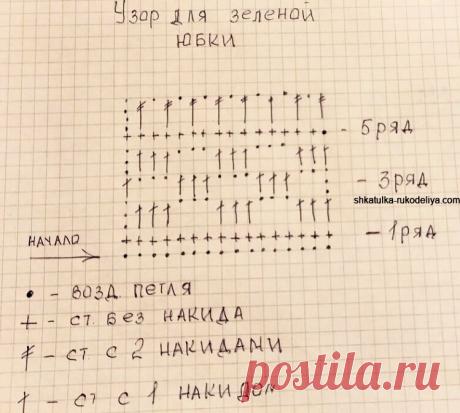 Узор для зеленой
ЮБКИ
- 5 ряд
- 3 ряд
shkatulka-rukodeliya.com
- 1 ряд
НАЧАЛО
• - ВОЗД. ПЕТЛЯ
+ - СТ. БЕЗ НАКИДА
- СТ. С 2 НАКИДАМИ
† - СТ С 1 НАКИДОМ
postila.ru